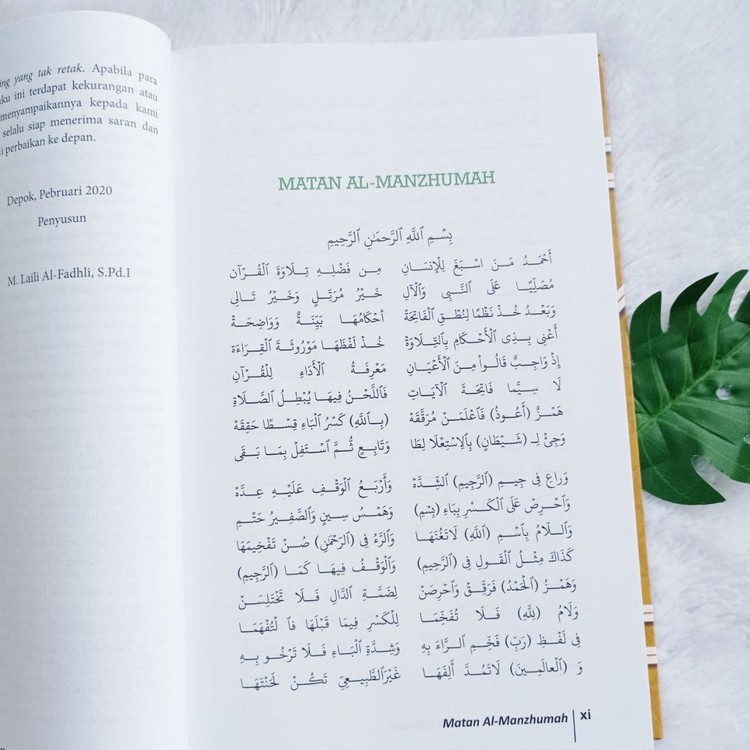 ing yang tak retak. Apabila para
ku ini terdapat kekurangan atau
menyampaikannya kepada kami
selalu siap menerima saran dan
i perbaikan ke depan.
Depok, Pebruari 2020
Penyusun
M. Laili Al-Fadhli, S.Pd.I
MATAN AL-MANZHUMAH
بِسْمِ اللَّهِ الرَّحْمَٰنِ الرَّحِيمِ
أَحْمَدُ مَنْ اسْبَغَ لِلْإِنْسَانِ مِن فَضْلِهِ تِلَاوَةَ الْقُرْآنِ
مُصَلِّيًا عَلَى النَّبِي وَالْآلِ خَيْرُ مُرَتِّلٍ وَخَيْرُ تَالِى
وَبَعْدُ خُذْ نَظْمًا لِنُطْقِ الْفَاتِحَةْ أَحْكَامُهَا بَيِّنَةٌ وَوَاضِحَةْ
أَعْنِي بِذِى الْأَحْكَامِ بِالتِّلَاوَةْ خُذْ لَفْظَهَا مَوْرُوثَةَ الْقِرَاءَةْ
إِذْ وَاجِبٌ قَالُوا مِنَ الْأَعْيَانِ مَعْرِفَةُ الْأَدَاءِ لِلْقُرْآنِ
لَا سِيَّمَا فَاتِحَةُ الْآيَاتِ فَاللَّحْنُ فِيهَا يُبْطِلُ الصَّلَاةِ
هَمْزُ (أَعُوذُ) فَاعْلَمَنْ مُرَقَّقَهْ (بِاللَّهِ) كَسْرُ الْبَاءِ قِسْطًا حَقِّقَهْ
وَجِئْ لِـ (شَيْطَانِ) بِالِاسْتِعْلَا لِطَا وَتَابِعٍ ثُمَّ اسْتَفِلْ بِمَا بَقَى
وَرَاعِ فِي جِيمِ (الرَّجِيمِ) الشِّدَّهْ وَأَرْبَعُ الْوَقْفِ عَلَيْهِ عِدَّهْ
وَاحْرِصْ عَلَى الْكَسْرِ بِبَاءِ (بِسْمِ) وَهَمْسُ سِينٍ وَالصَّفِيرُ حَتْمِ
وَاللَّامُ بِاسْمِ (اللَّهِ) لَا تَغُنَّهَا وَالرَّاءُ فِي (الرَّحْمَٰنِ) صُنْ تَفْخِيمَهَا
كَذَاكَ مِثْلُ الْقَوْلِ فِي (الرَّحِيمِ) وَالْوَقْفُ فِيهَا كَمَا (الرَّجِيمِ)
وَهَمْزُ (الْحَمْدُ) فَرَقِّقْ وَاحْرِصَنْ لِضَمَّةِ الدَّالِ فَلَا تَخْتَلِسَنْ
وَلَامُ (لِلَّهِ) فَلَا تُفَخِّمَا لِلْكَسْرِ فِيمَا قَبْلَهَا فَا لْتُفْهَمَا
فِي لَفْظِ (رَبِّ) فَخِّمِ الرَّاءَ بِهِ وَشِدَّةِ الْبَاءِ فَلَا تَرْخُو بِهِ
وَ (الْعَالَمِينَ) لَا تَمُدَّ أَلِفَهَا غَيْرَ الطَّبِيعِيِّ تَكُنْ لَحَنْتَهَا
Matan Al-Manzhumah | xi